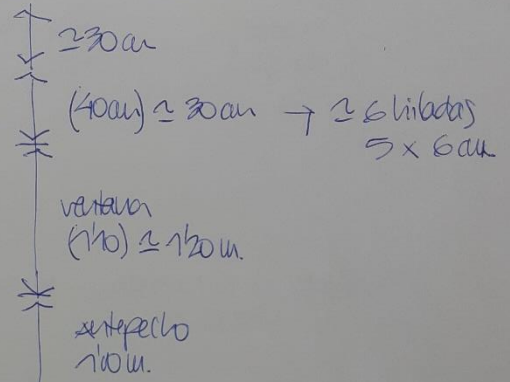 ≃30cm
(40cm) ≃ 30cm → ≃ 6 hiladas
5 x 6cm
ventana
(1'10) ≃ 1'20m.
antepecho
1'00m.